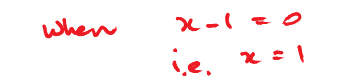 when x-1=0
i.e. x=1